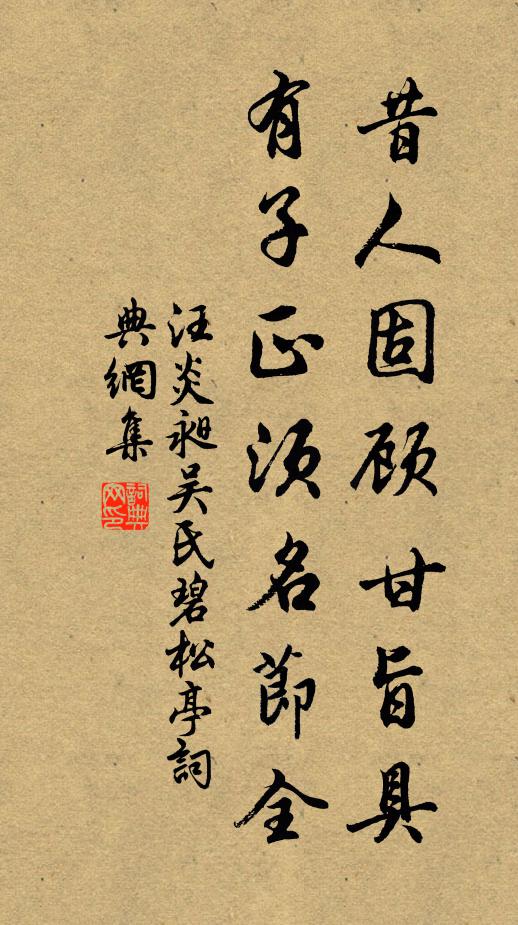 昔人固顾甘旨具
有子正须名節全
汪炎昶吴氏碧松亭詞
典網集
詞典网印